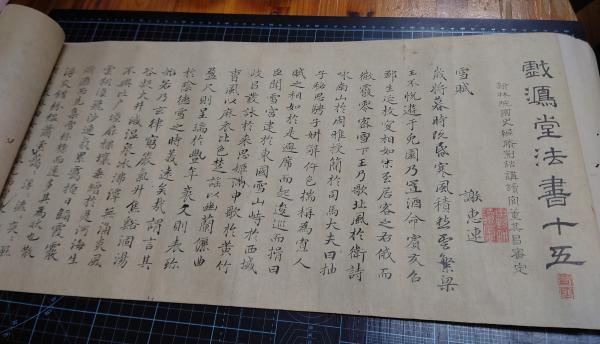 戲鴻堂法書十五
翰林院國史編修制誥講讀官董其昌審定
雪賦
謝惠連
歲將暮時既昏寒風積愁雲繁梁
王不悅遊於兔園乃置酒命賓友召
鄒生延枚叟相如末至居客之右俄而
微霰零密雪下王乃歌北風於衛詩
咏南山於周雅授簡於司馬大夫曰抽
子秘思騁子妍辭侔色揣稱為寡人
賦之相如於是避席而起逡巡而揖曰
臣聞雪宮建於東國雪山峙於西域
岐昌發詠於來思姬滿申歌於黃竹
曹風以麻衣比色楚謠以幽蘭儷曲
盈尺則呈瑞於豐年袤丈則表沴
於陰德雪之時義遠矣哉請言其
始若乃玄律窮嚴氣升焦谿涸湯
谷凝火井滅溫泉冰沸潭無涌炎風
不興北戶墐扉裸壤垂繒於是河海生
雲朔漠飛沙連氛累靄揜日韜霞霰
淅瀝而先集雪紛糅而遂多其為狀也散
漫交錯氛氳蕭索